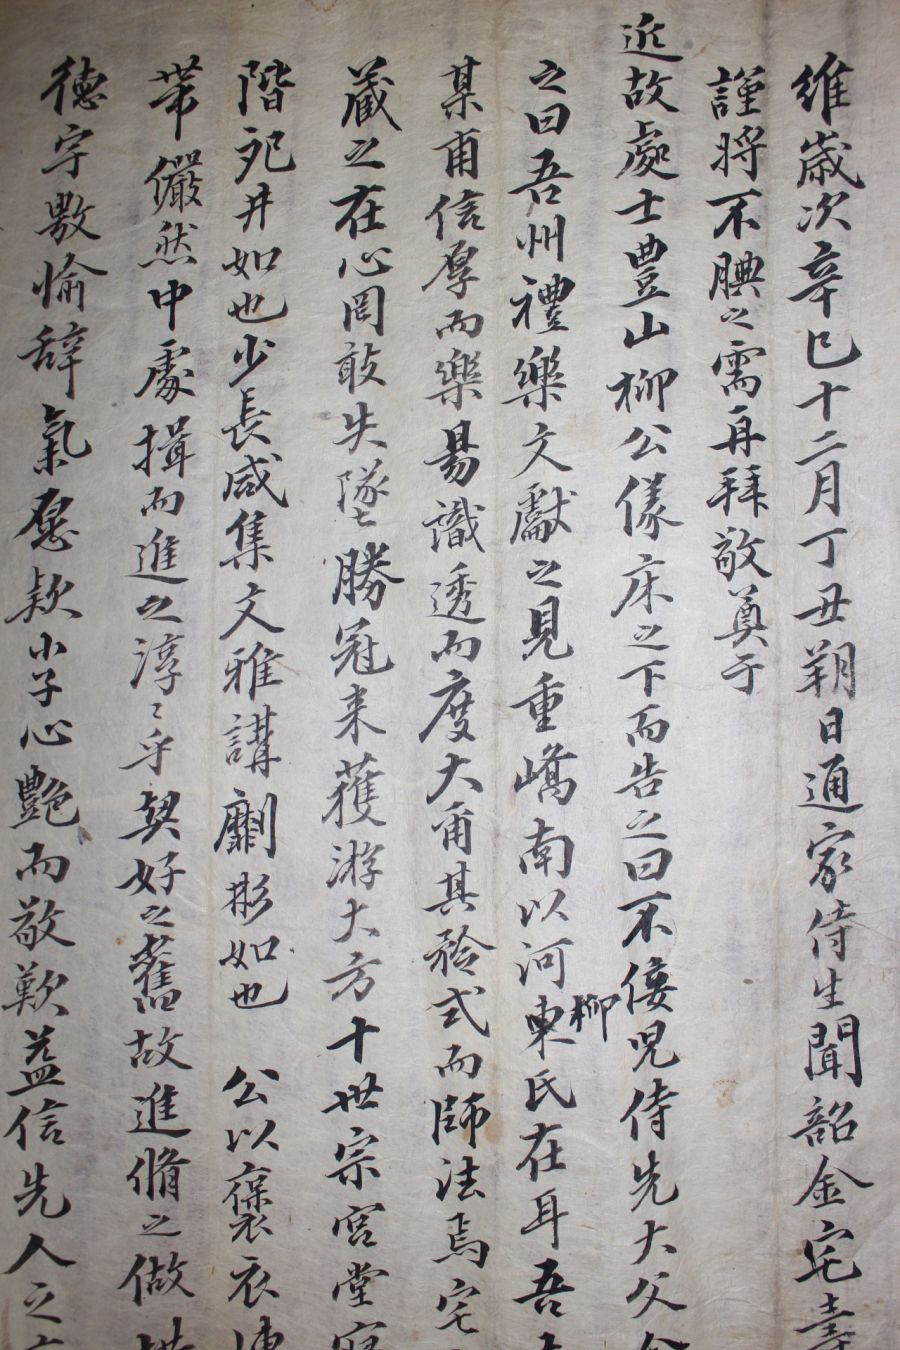 維歲次辛巳十二月丁丑朔日通家侍生聞韶金宅壽
謹將不腆之需再拜敬奠于
近故處士豊山柳公傢床之下而告之曰不佞児侍先大父
之曰吾州禮樂文獻之見重嶠南以河東柳氏在耳吾
某甫信厚而樂易識透而度大甬其矜式而師法焉宅
藏之在心罔敢失墜勝冠来獲游大方十世宗宮堂
階戺井如也少長咸集文雅講劘彬如也 公以褒衣
帶儼然中處揖而進之淳〻乎契好之舊故進脩之做
德宇敷愉辞氣愿款小子心艶而敬歎益信先人之